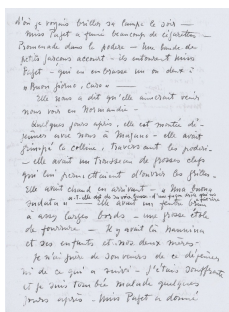 d'où je voyais briller sa lampe le soir —
Miss Paget a fumé beaucoup de cigarettes —
Promenade dans le podere — Une bande de
petits garçons accourt — ils entourent Miss
Paget — qui en embrasse un ou deux :
« Buon giorno, caro » —
Elle nous a dit qu'elle aimerait venir
nous voir en Normandie.
Quelques jours après, elle est montée dé-
jeuner avec nous à — elle avait
grimpé la colline, traversant les poderi.
— elle avait un trousseau de grosses clefs
qui lui permettaient d'ouvrir les grilles.
Elle avait chaud en arrivant — « Ma buona
sudata » —
Elle avait un feutre
à assez larges bords — une grosse étole
de fourrure — Il y avait là Nannina
et ses enfants et nos deux mères.
Je n'ai pas de souvenirs de ce déjeuner
ni de ce qui a suivi — J'étais souffrante
et je suis tombée malade quelques
jours après — Miss Paget a donné